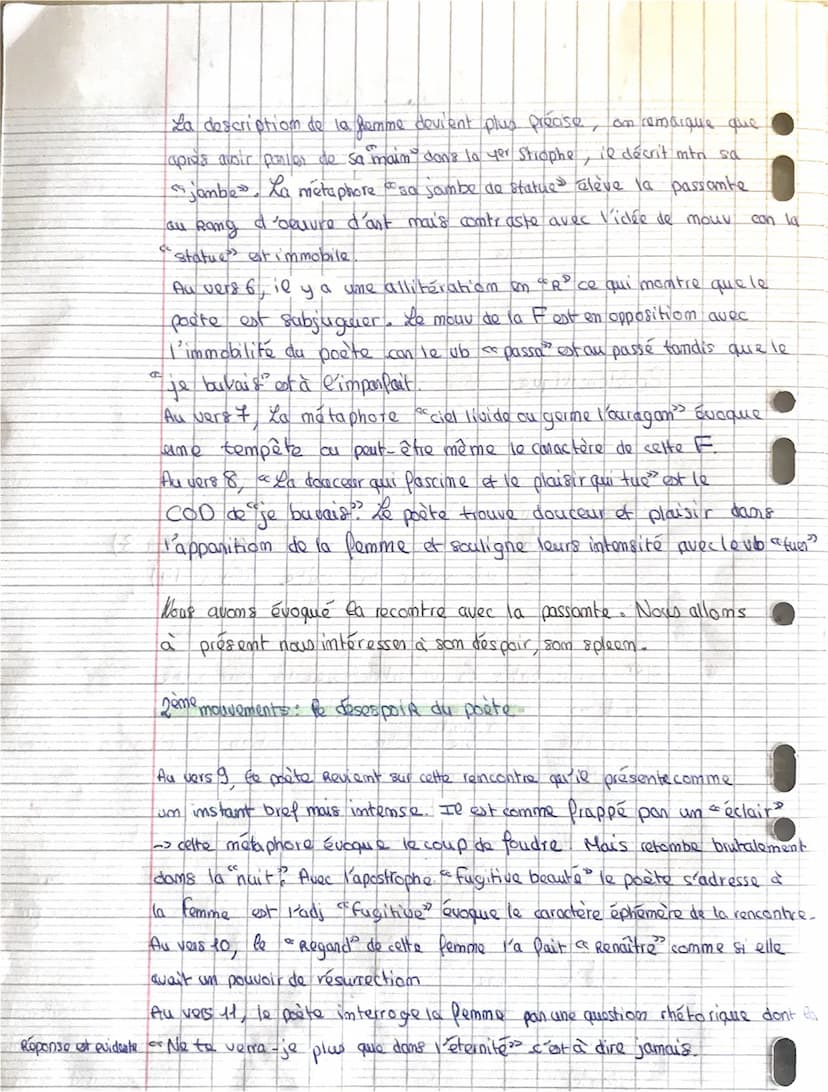 La description de la femme devient plus précise, on remarque que
après avoir parler de sa "main" dans la 1er strophe, il décrit mtn sa
"jambe". La métaphore "sa jambe de statue" élève la passante
au rang d'oeuvre d'art mais contraste avec l'idée de mouv car la
"statue" est immobile.
Au vers 6, il y a une allitération en "R" ce qui montre que le
poète est subjuguer. Le mouv de la F est en opposition avec
l'immobilité du poète car le vb "passa" est au passé tandis que le
"je buvais" est à l'imparfait.
Au vers 7, La métaphore "ciel livide ou germe l'ouragan" évoque
une tempête ou peut-être même le caractère de cette F.
Au vers 8, "La douceur qui fascine et le plaisir qui tue" est le
COD de "je buvais". Le poète trouve douceur et plaisir dans
l'apparition de la femme et souligne leurs intensité avec le vb "tuer"
Nous avons évoqué la recontre avec la passante. Nous allons
à présent nous intéresser à son déspoir, son spleen.
2ème mouvements: le désespoir du poète
Au vers 9, le poète revient sur cette rencontre qu'il présente comme
un instant bref mais intense. Il est comme frappé par un "éclair"
-> cette métaphore évoque le coup de foudre. Mais retombe brutalement
dans la "nuit". Avec l'apostrophe "fugitive beauté" le poète s'adresse à
la femme est l'adj "fugitive" évoque le caractère éphémère de la rencontre.
Au vers 10, le "Regard" de cette femme l'a fait "Renaître" comme si elle
avait un pouvoir de résurrection
Au vers 11, le poète interroge la femme par une question rhétorique dont
Réponse est evidente "Ne te verra-je plus que dans l'éternité" c'est à dire jamais.